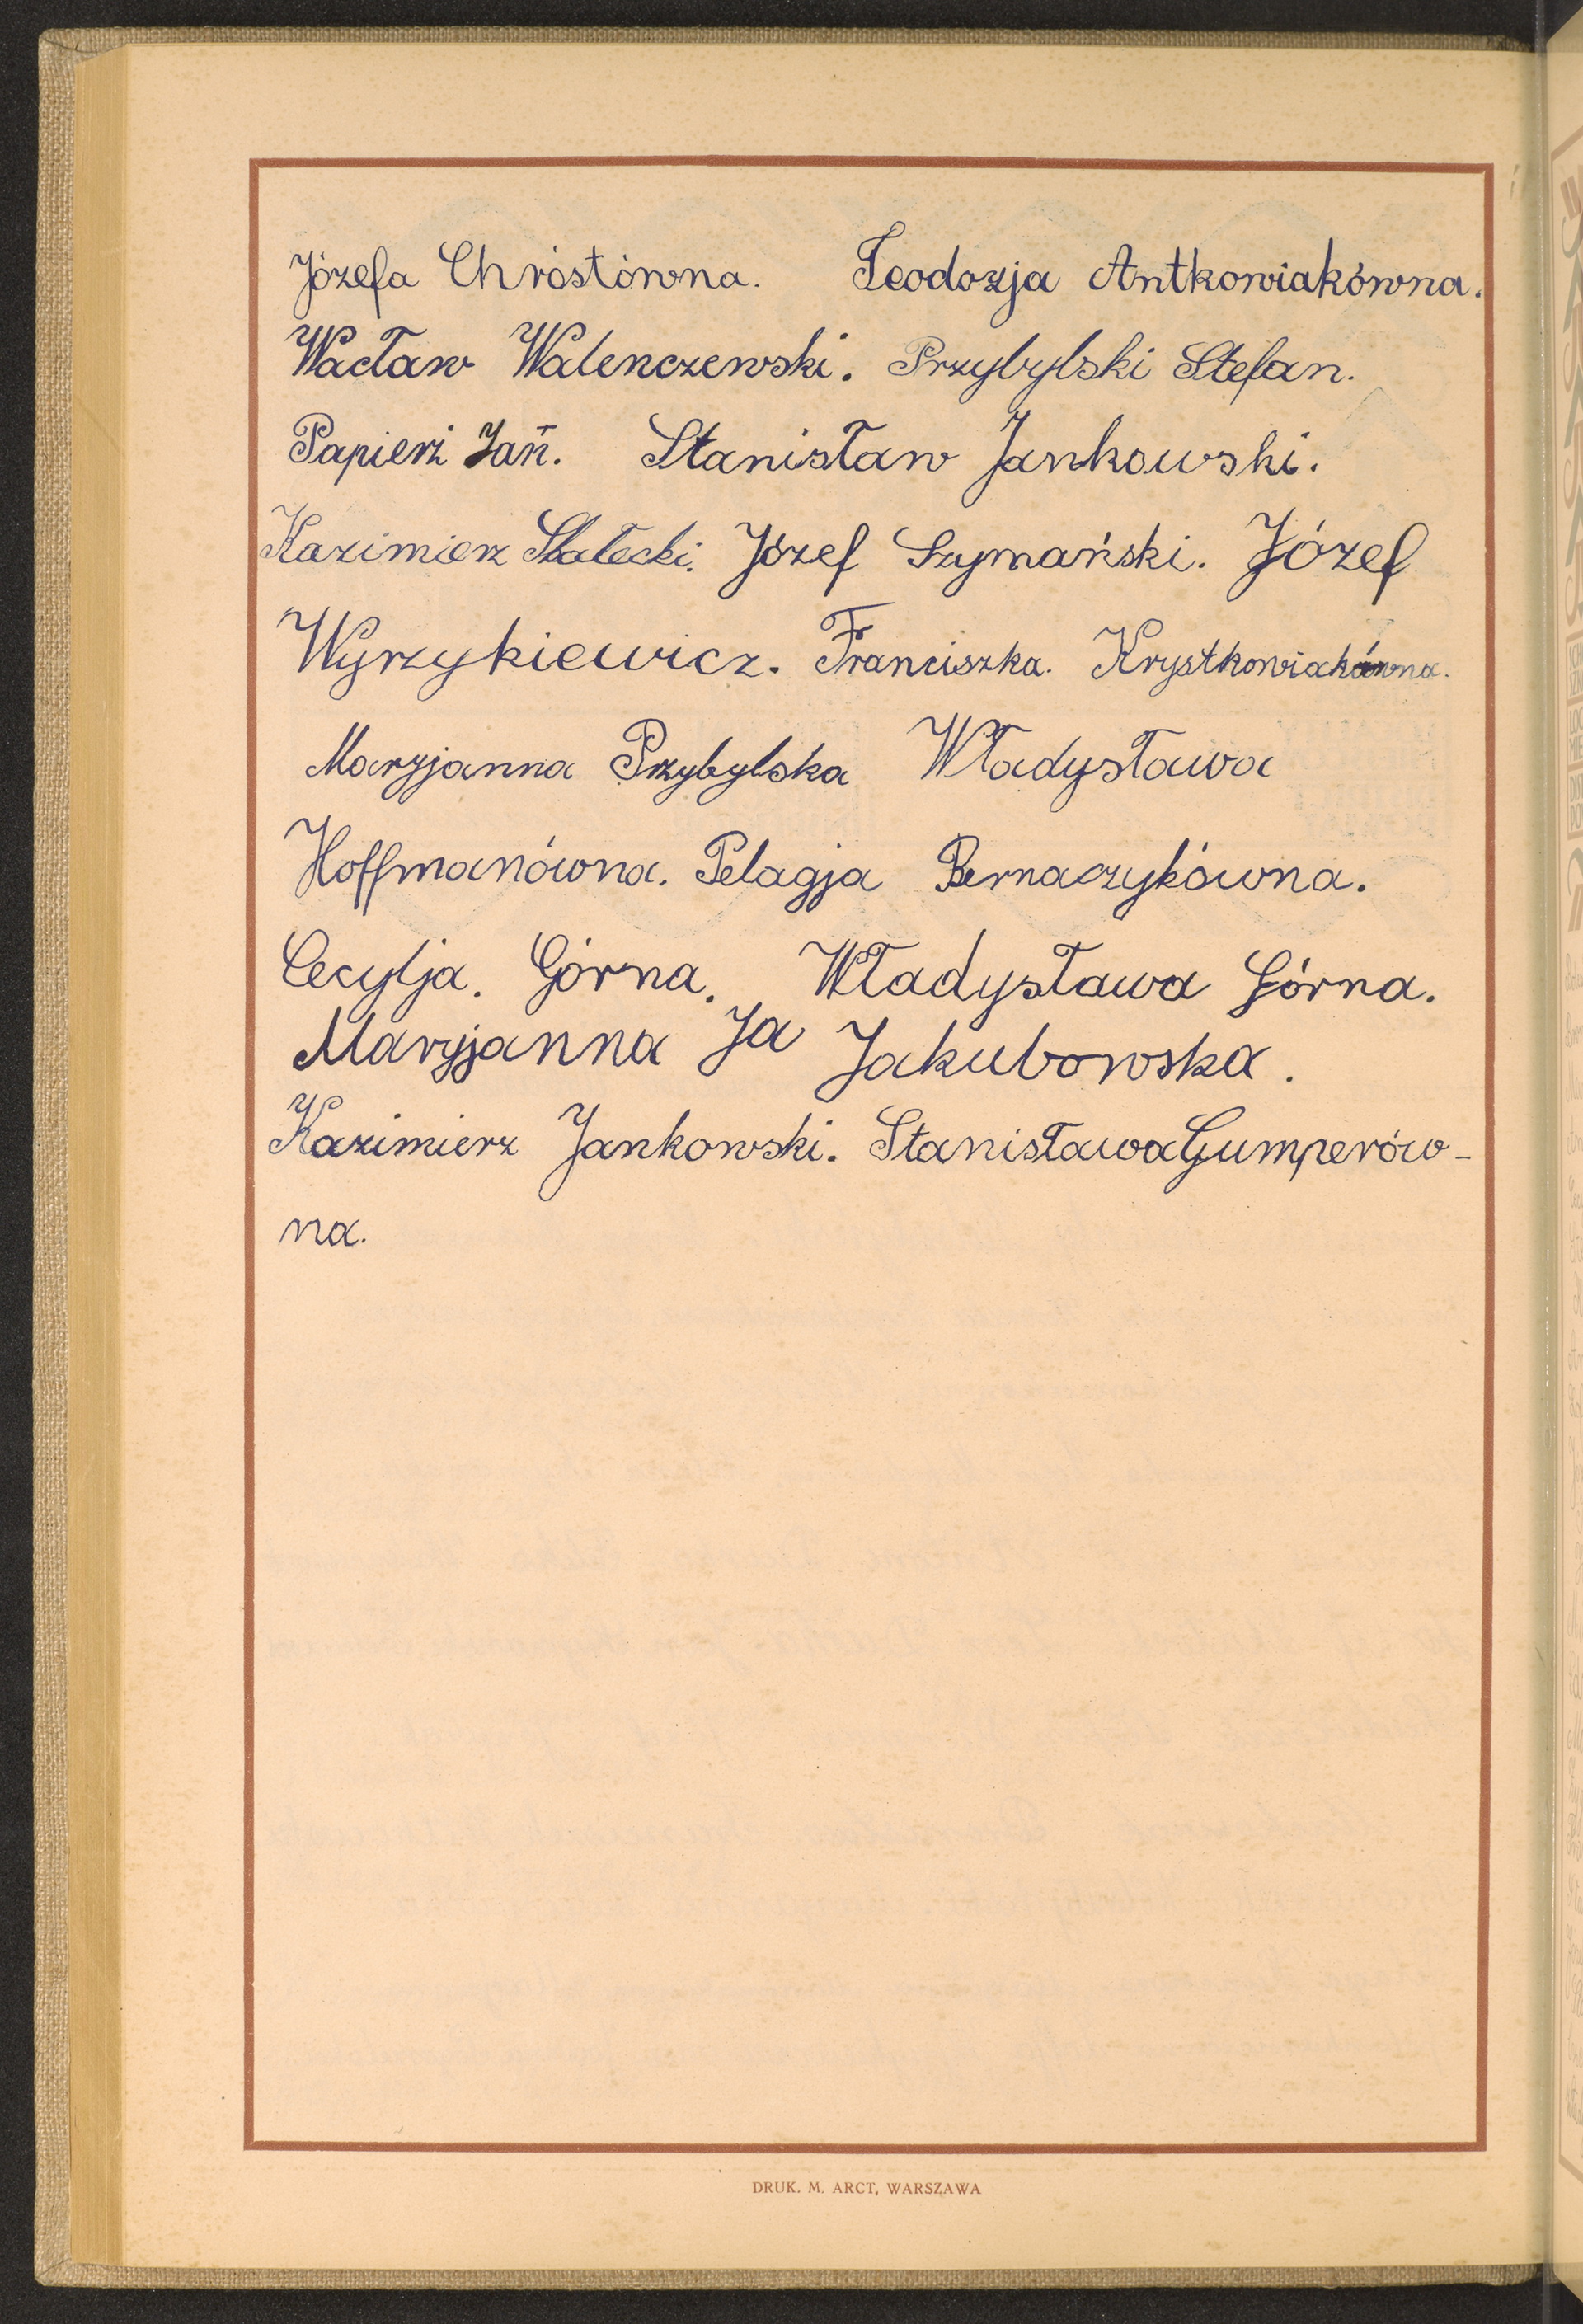 Józefa Chróstówna. Teodozja Antkowiakówna.
Wacław Walenczewski. Przybylski Stefan.
Papierz Jan. Stanisław Jankowski.
Kazimierz Skałecki. Józef Szymański. Józef
Wyrzykiewicz. Franciszka. Krystkowiakówna.
Maryjanna Przybylska Władysława
Hoffmanówna. Pelagja Bernaczykówna.
Cecylja. Górna. Władysława Górna.
Maryjanna Ja Jakubowska.
Kazimierz Jankowski. Stanisława Gumperów-
na.
DRUK. M. ARCT, WARSZAWA